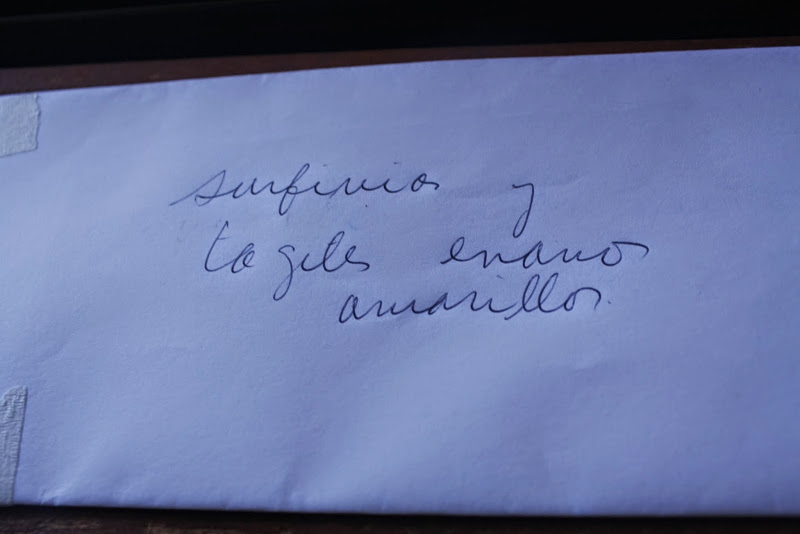 surfinias y
tagetes enanos
amarillos.